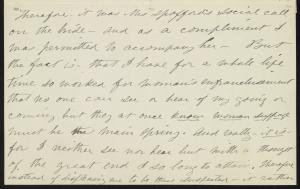 "Therefore, it was Mrs Spofford's social call"
on the bride - and as a compliment I
was permitted to accompany her - But
the fact is - that I have for a whole life
time so worked for woman's enfranchisement
that no one can see or hear of my going or
coming but they at once know woman suffrage
must be the main spring. And really - it is -
for I neither see nor hear but with a thought
of the great end I so long to attain. Therefore
instead of displeasing me to be thus suspected - it rather